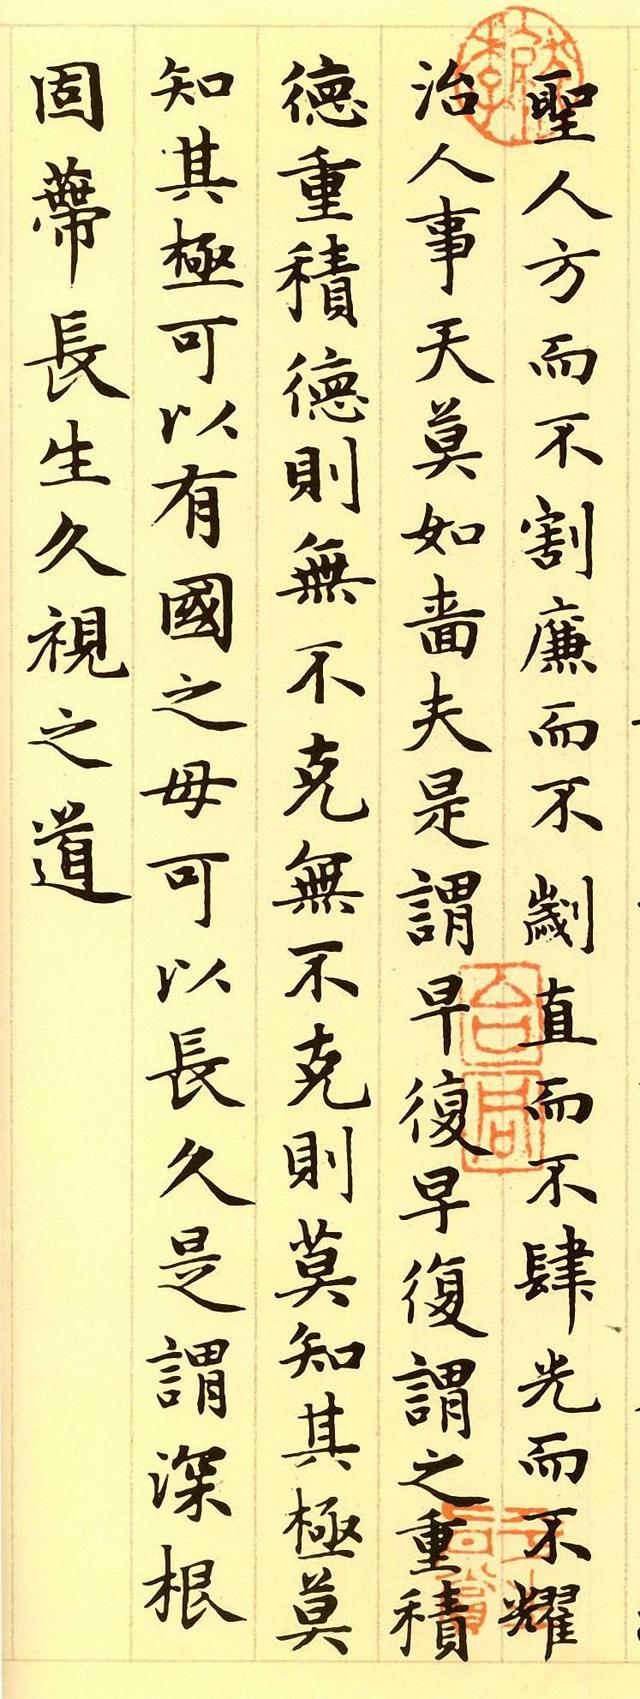 聖人方而不割廉而不劌直而不肆光而不耀
治人事天莫如嗇夫是謂早復早復謂之重積
德重積德則無不克無不克則莫知其極莫
知其極可以有國之母可以長久是謂深根
固蔕長生久視之道